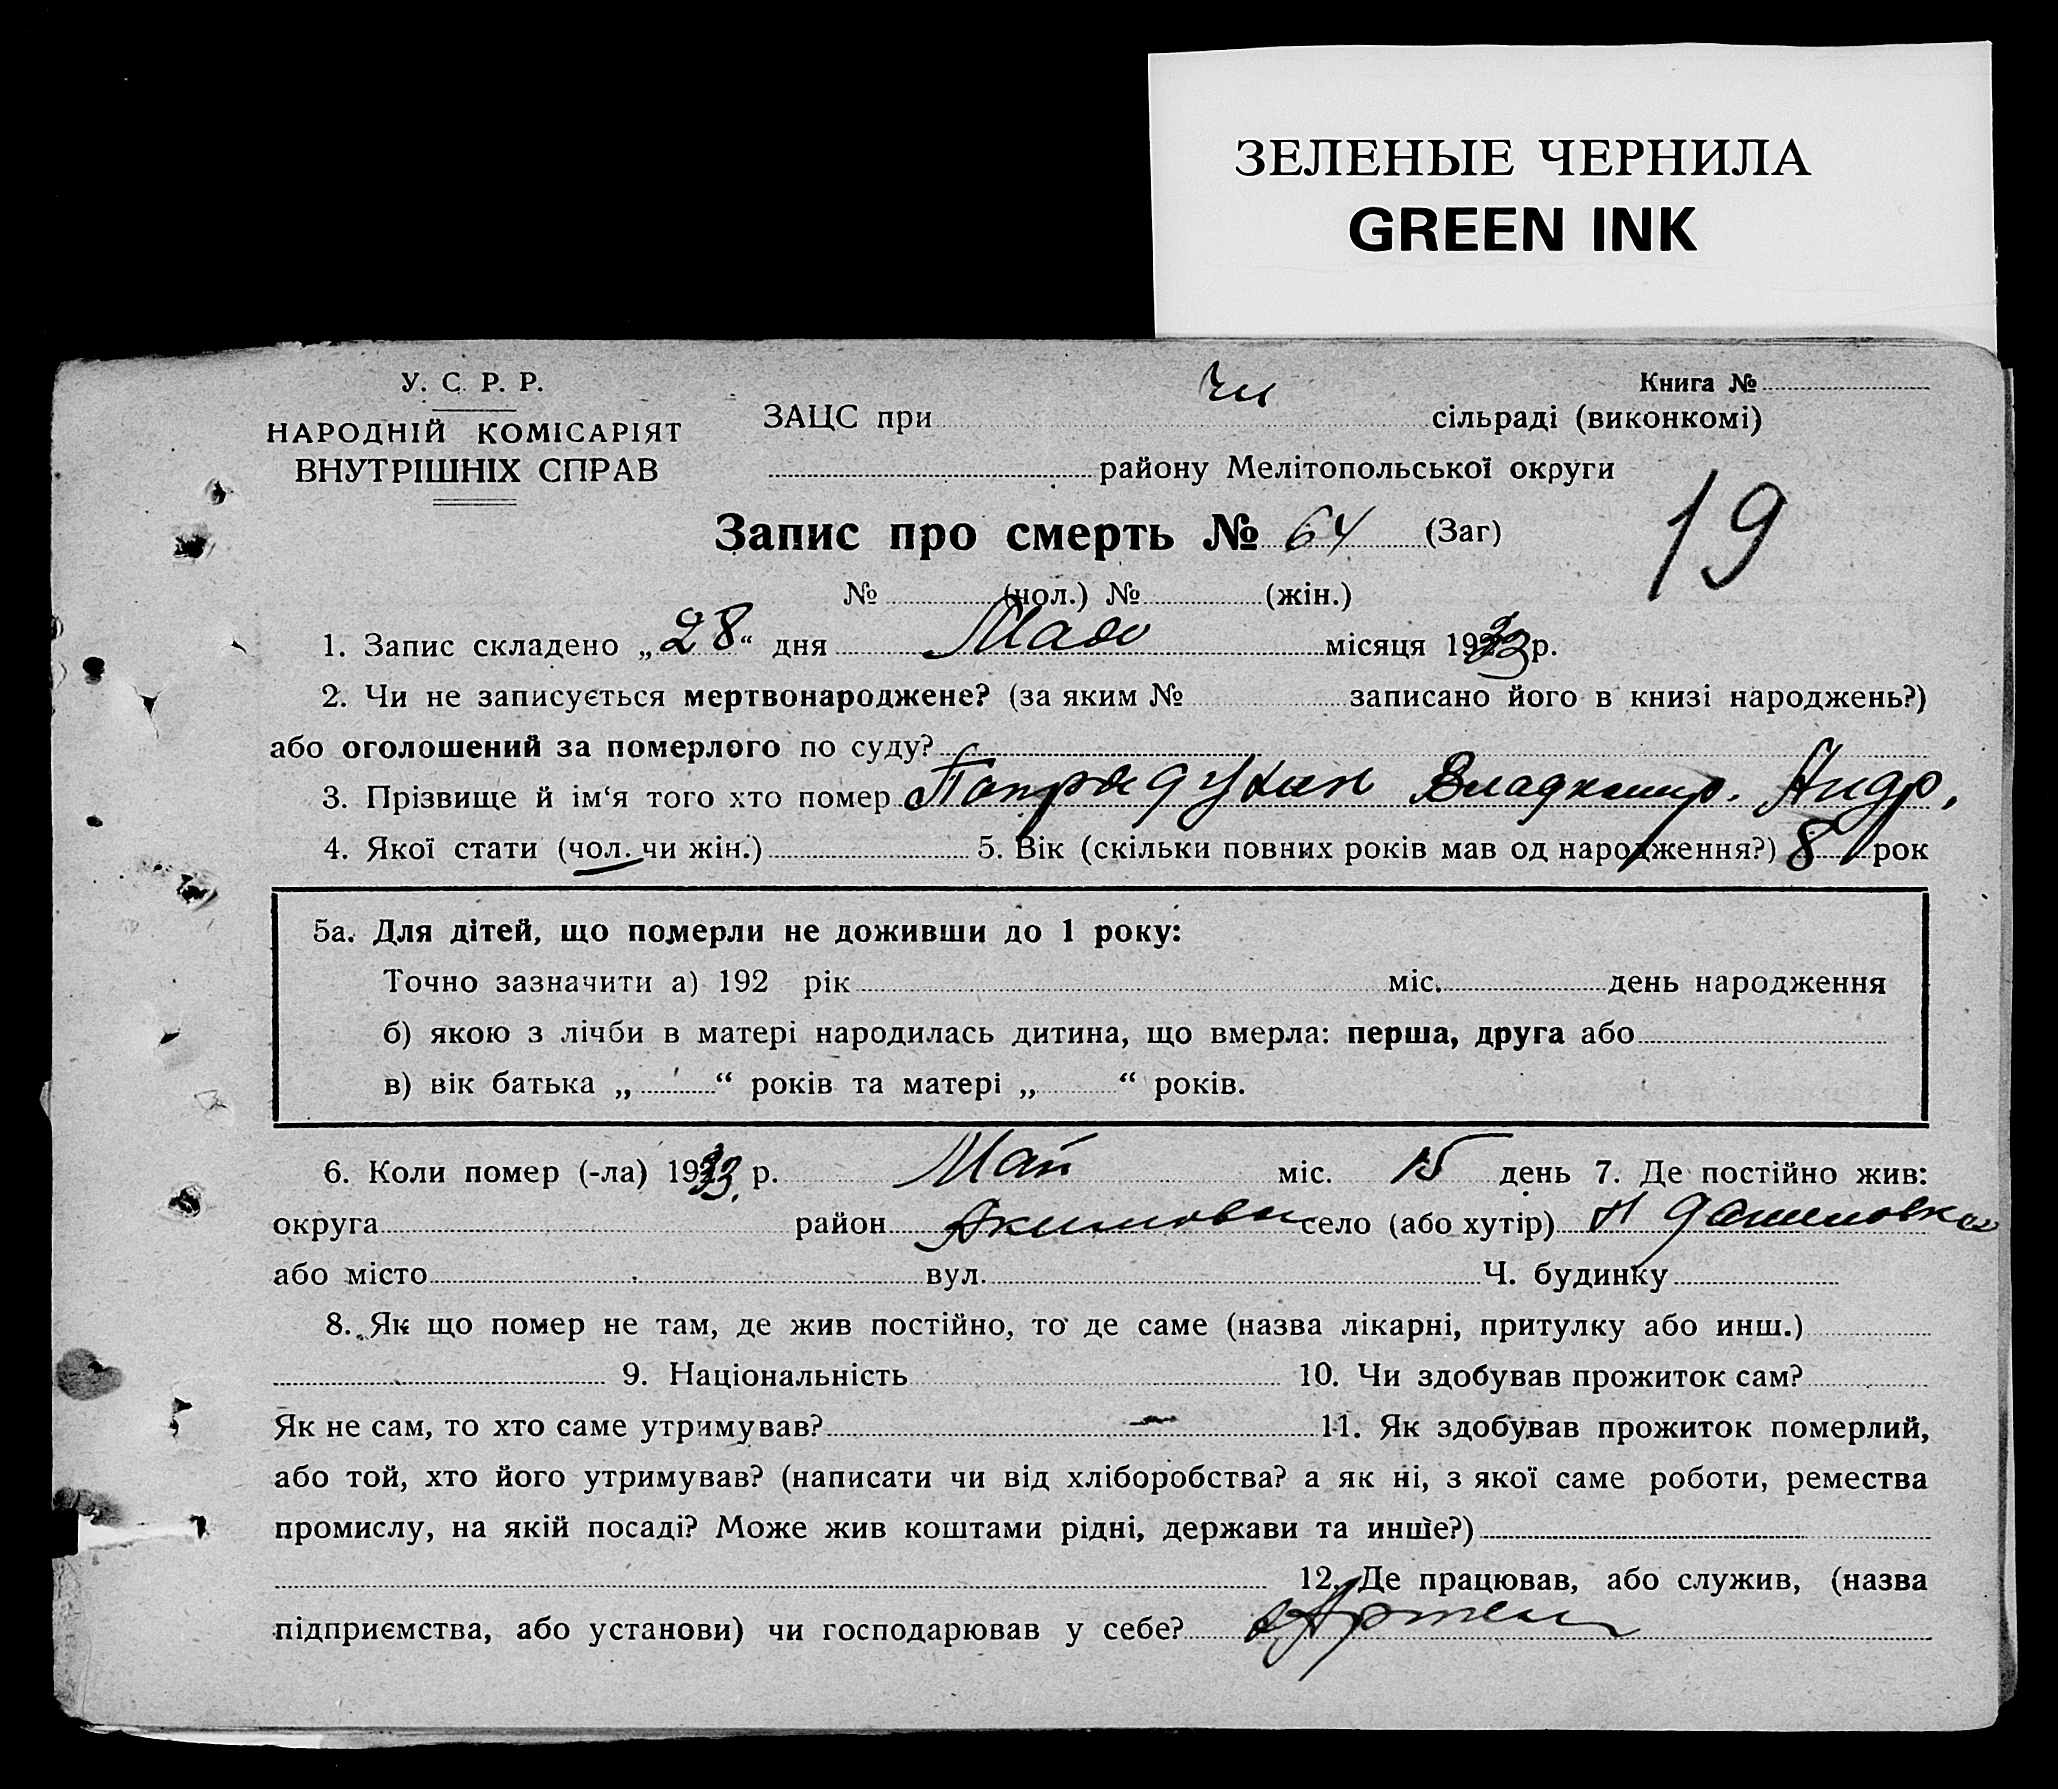 ЗЕЛЕНЫЕ ЧЕРНИЛА
GREEN INK
У. С. Р. Р.
НАРОДНІЙ КОМІСАРІЯТ
ВНУТРІШНІХ СПРАВ
Книга №
ЗАЦС при сільраді (виконкомі)
району Мелітопольської округи
19
Запис про смерть № 64 (Заг)
№ (чол.) № (жін.)
1. Запис складено „28“ дня Мая місяця 1933 р.
2. Чи не записується мертвонароджене? (за яким № записано його в книзі народжень?)
або оголошений за померлого по суду?
3. Прізвище й ім‘я того хто помер Владимир. Андр.
4. Якої стати (чол. чи жін.) 5. Вік (скільки повних років мав од народження?) 8 рок
5а. Для дітей, що померли не доживши до 1 року:
Точно зазначити а) 192 рік міс. день народження
б) якою з лічби в матері народилась дитина, що вмерла: перша, друга або
в) вік батька „ “ років та матері „ “ років.
6. Коли помер (-ла) 1933 р. Май міс. 15 день 7. Де постійно жив:
округа район Акимовск село (або хутір)
або місто вул. Ч. будинку
8. Як що помер не там, де жив постійно, то де саме (назва лікарні, притулку або инш.)
9. Національність 10. Чи здобував прожиток сам?
Як не сам, то хто саме утримував? — 11. Як здобував прожиток померлий,
або той, хто його утримував? (написати чи від хліборобства? а як ні, з якої саме роботи, ремества
промислу, на якій посаді? Може жив коштами рідні, держави та инше?)
12. Де працював, або служив, (назва
підприємства, або установи) чи господарював у себе?